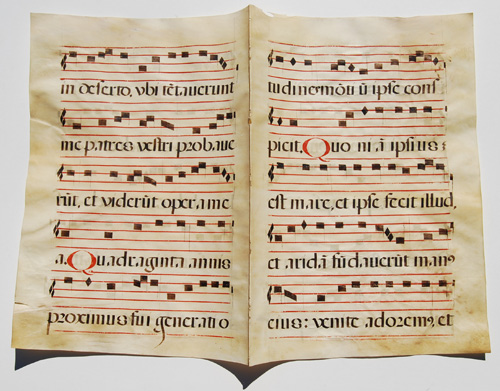 in deserto, vbi tētauerunt
me patres vestri probaue
rūt, et viderūt opera me
a. Quadraginta annis
proximus fui generatio
tudinemōti ū ipse cons
picit. Quo ni ā ipsius
est mare, et ipse fecit illud,
et aridā fūdauerūt manꝰ
eius: venite adoremꝰ, et